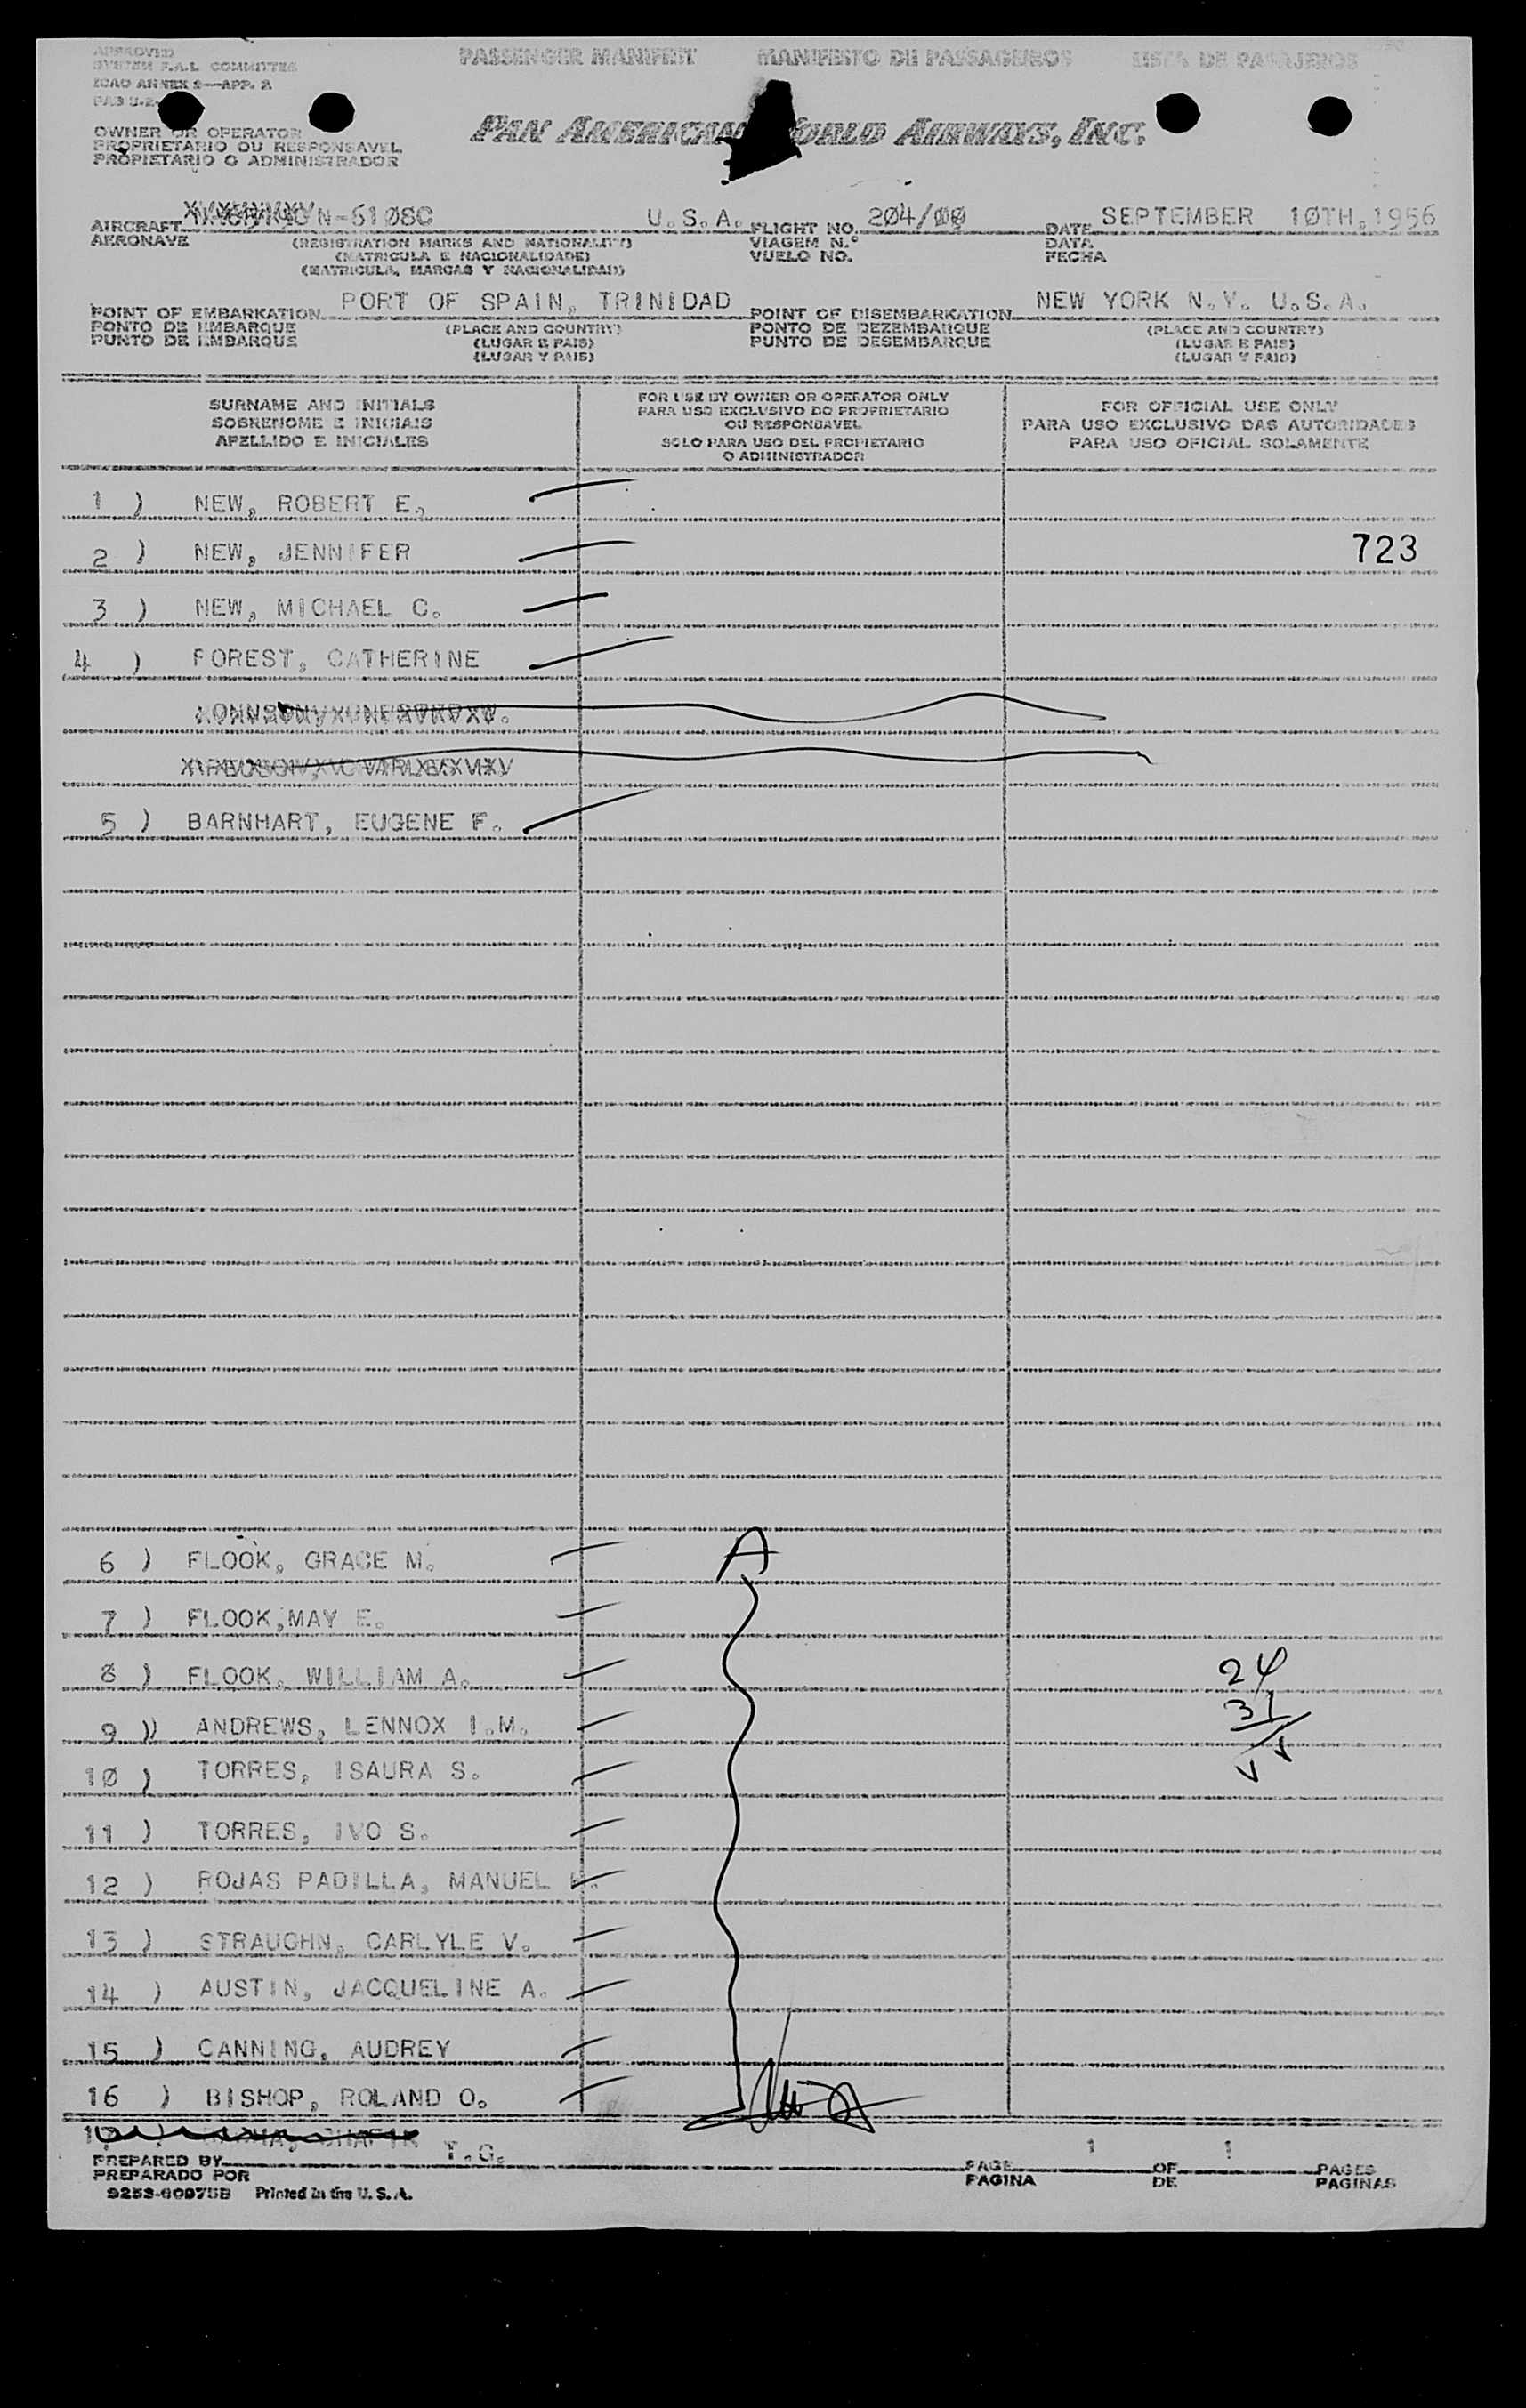 APPROVED
SYSTEM F.A.L. COMMITTEE
ICAO ANNEX 9—APP. 2
PASSENGER MANIFEST MANIFESTO DE PASSAGEIROS LISTA DE PASAJEROS
OWNER OR OPERATOR
PROPRIETARIO OU RESPONSAVEL
PROPIETARIO O ADMINISTRADOR
PAN AMERICAN WORLD AIRWAYS, INC.
AIRCRAFT N-6108C U.S.A. FLIGHT NO. 204/00 DATE SEPTEMBER 10TH,1956
AERONAVE (REGISTRATION MARKS AND NATIONALITY) VIAGEM N.° DATA
(MATRICULA E NACIONALIDADE) VUELO NO. FECHA
(MATRICULA, MARCAS Y NACIONALIDAD)
POINT OF EMBARKATION PORT OF SPAIN, TRINIDAD POINT OF DISEMBARKATION NEW YORK N.Y. U.S.A.
PONTO DE EMBARQUE (PLACE AND COUNTRY) PONTO DE DEZEMBARQUE (PLACE AND COUNTRY)
PUNTO DE EMBARQUE (LUGAR E PAIS) PUNTO DE DESEMBARQUE (LUGAR E PAIS)
(LUGAR Y PAIS) (LUGAR Y PAIS)
SURNAME AND INITIALS
SOBRENOME E INICIAIS
APELLIDO E INICIALES
FOR USE BY OWNER OR OPERATOR ONLY
PARA USO EXCLUSIVO DO PROPRIETARIO
OU RESPONSAVEL
SOLO PARA USO DEL PROPIETARIO
O ADMINISTRADOR
FOR OFFICIAL USE ONLY
PARA USO EXCLUSIVO DAS AUTORIDADES
PARA USO OFICIAL SOLAMENTE
1 ) NEW, ROBERT E.
2 ) NEW, JENNIFER 723
3 ) NEW, MICHAEL C.
4 ) FOREST, CATHERINE
5 ) BARNHART, EUGENE F.
6 ) FLOOK, GRACE M. A
7 ) FLOOK,MAY E.
8 ) FLOOK, WILLIAM A. 24
31
9 )) ANDREWS, LENNOX I.M.
10 ) TORRES, ISAURA S.
11 ) TORRES, IVO S.
12 ) ROJAS PADILLA, MANUEL
13 ) STRAUGHN, CARLYLE V.
14 ) AUSTIN, JACQUELINE A.
15 ) CANNING, AUDREY
16 ) BISHOP, ROLAND O.
PREPARED BY T.G. PAGE 1 OF 1 PAGES
PREPARADO POR PAGINA DE PAGINAS
9253-60975B Printed in the U.S.A.